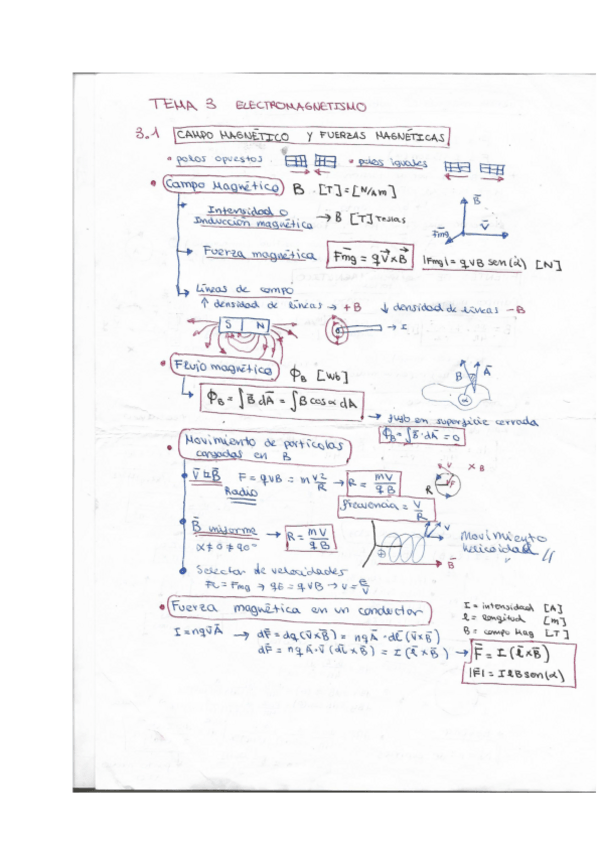 TEMA 3 ELECTROMAGNETISMO
3.1 CAMPO MAGNÉTICO Y FUERZAS MAGNÉTICAS
• polos opuestos • polos iguales
• Campo Magnético B [T]=[N/Am]
→ Intensidad o Inducción magnética → B [T] Teslas
B
V
Fmg
→ Fuerza magnética Fmg = qV×B |Fmg| = qVB sen(α) [N]
→ Líneas de campo
↑ densidad de líneas → +B ↓ densidad de líneas −B
S N
→ I
• Flujo magnético ΦB [Wb]
B A
α
ΦB = ∫B dA = ∫B cosα dA
→ flujo en superficie cerrada
ΦB = ∫B·dA = 0
• Movimiento de partículas cargadas en B
F = qVB = m V²/R → R = mV/qB
Radio
V × B
F
R
frecuencia = V/R
B uniforme → R = mV/qB
α ≠ 0 ≠ 90°
V
B
Movimiento helicoidal
• Selector de velocidades
= Fmg → = qVB → V =
• Fuerza magnética en un conductor
I = intensidad [A]
l = longitud [m]
B = campo Mag [T]
I = nqVA → dF = dq(V×B) = nqA·dl(V×B)
dF = nqA·V(dl×B) = I(l×B) → F = I(l×B)
|F| = IlB sen(α)